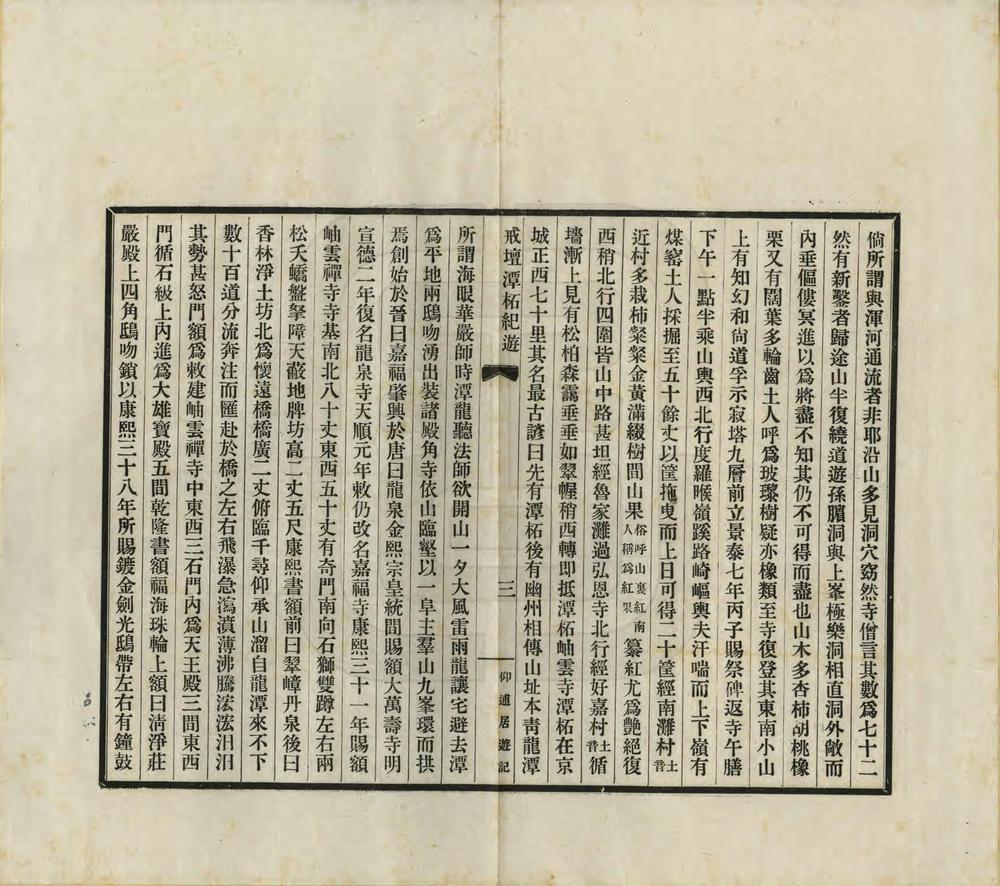 倘所謂與渾河通流者非耶沿山多見洞穴窈然寺僧言其數爲七十二
然有新鑿者歸途山半復繞道遊孫臏洞與上峯極樂洞相直洞外敞而
內垂傴僂冥進以爲將盡不知其仍不可得而盡也山木多杏柿胡桃橡
栗又有闊葉多輪齒土人呼爲玻瓈樹疑亦橡類至寺復登其東南小山
上有知幻和尙道孚示寂塔九層前立景泰七年丙子賜祭碑返寺午膳
下午一點半乘山輿西北行度羅㬋嶺蹊路崎嶇輿夫汗喘而上下嶺有
煤窰土人採掘至五十餘丈以筐拖曳而上日可得二十筐經南灘村土音
近村多栽柿粲粲金黃滿綴樹間山果俗呼山裏紅南人稱爲紅果纂紅尤爲艷絕復
西稍北行四圍皆山中路甚坦經魯家灘過弘恩寺北行經好嘉村土音循
墻漸上見有松柏森靄垂垂如翠幄稍西轉即抵潭柘岫雲寺潭柘在京
城正西七十里其名最古諺曰先有潭柘後有幽州相傳山址本靑龍潭
戒壇潭柘紀遊 三 仰逋居遊記
所謂海眼華嚴師時潭龍聽法師欲開山一夕大風雷雨龍讓宅避去潭
爲平地兩鴟吻湧出裝諸殿角寺依山臨壑以一阜主羣山九峯環而拱
焉創始於晉曰嘉福肇興於唐曰龍泉金熙宗皇統間賜額大萬壽寺明
宣德二年復名龍泉寺天順元年敕仍改名嘉福寺康熙三十一年賜額
岫雲禪寺寺基南北八十丈東西五十丈有奇門南向石獅雙蹲左右兩
松夭蟜盤拏障天蔽地牌坊高二丈五尺康熙書額前曰翠嶂丹泉後曰
香林淨土坊北爲懷遠橋橋廣二丈俯臨千尋仰承山溜自龍潭來不下
數十百道分流奔注而匯赴於橋之左右飛瀑急瀉濆薄沸騰浤浤汨汨
其勢甚怒門額爲敕建岫雲禪寺中東西三石門內爲天王殿三間東西
門循石級上內進爲大雄寶殿五間乾隆書額福海珠輪上額曰淸淨莊
嚴殿上四角鴟吻鎖以康熙三十八年所賜鍍金劍光鴟帶左右有鐘鼓